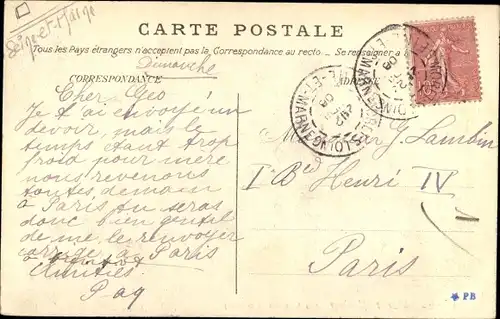 Seine-et-Marne
CARTE POSTALE
Tous les Pays étrangers n'acceptent pas la Correspondance au recto... Se renseigner à
Dimanche
CORRESPONDANCE
Cher Géo
Je t'ai envoyé un
devoir, mais le
temps étant trop
froid pour mère
nous revenons
toutes demain
à Paris tu seras
donc bien gentil
de me le renvoyer
à Paris
Amitiés
Pag
G. Lambin
1 Bd Henri IV
Paris
PB